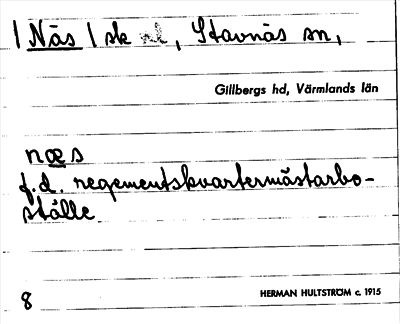 | Näs | sk , Stavnäs sn,
Gillbergs hd, Värmlands län
næs
f.d. regementskvartermästarbo-
ställe
8
HERMAN HULTSTRÖM c. 1915